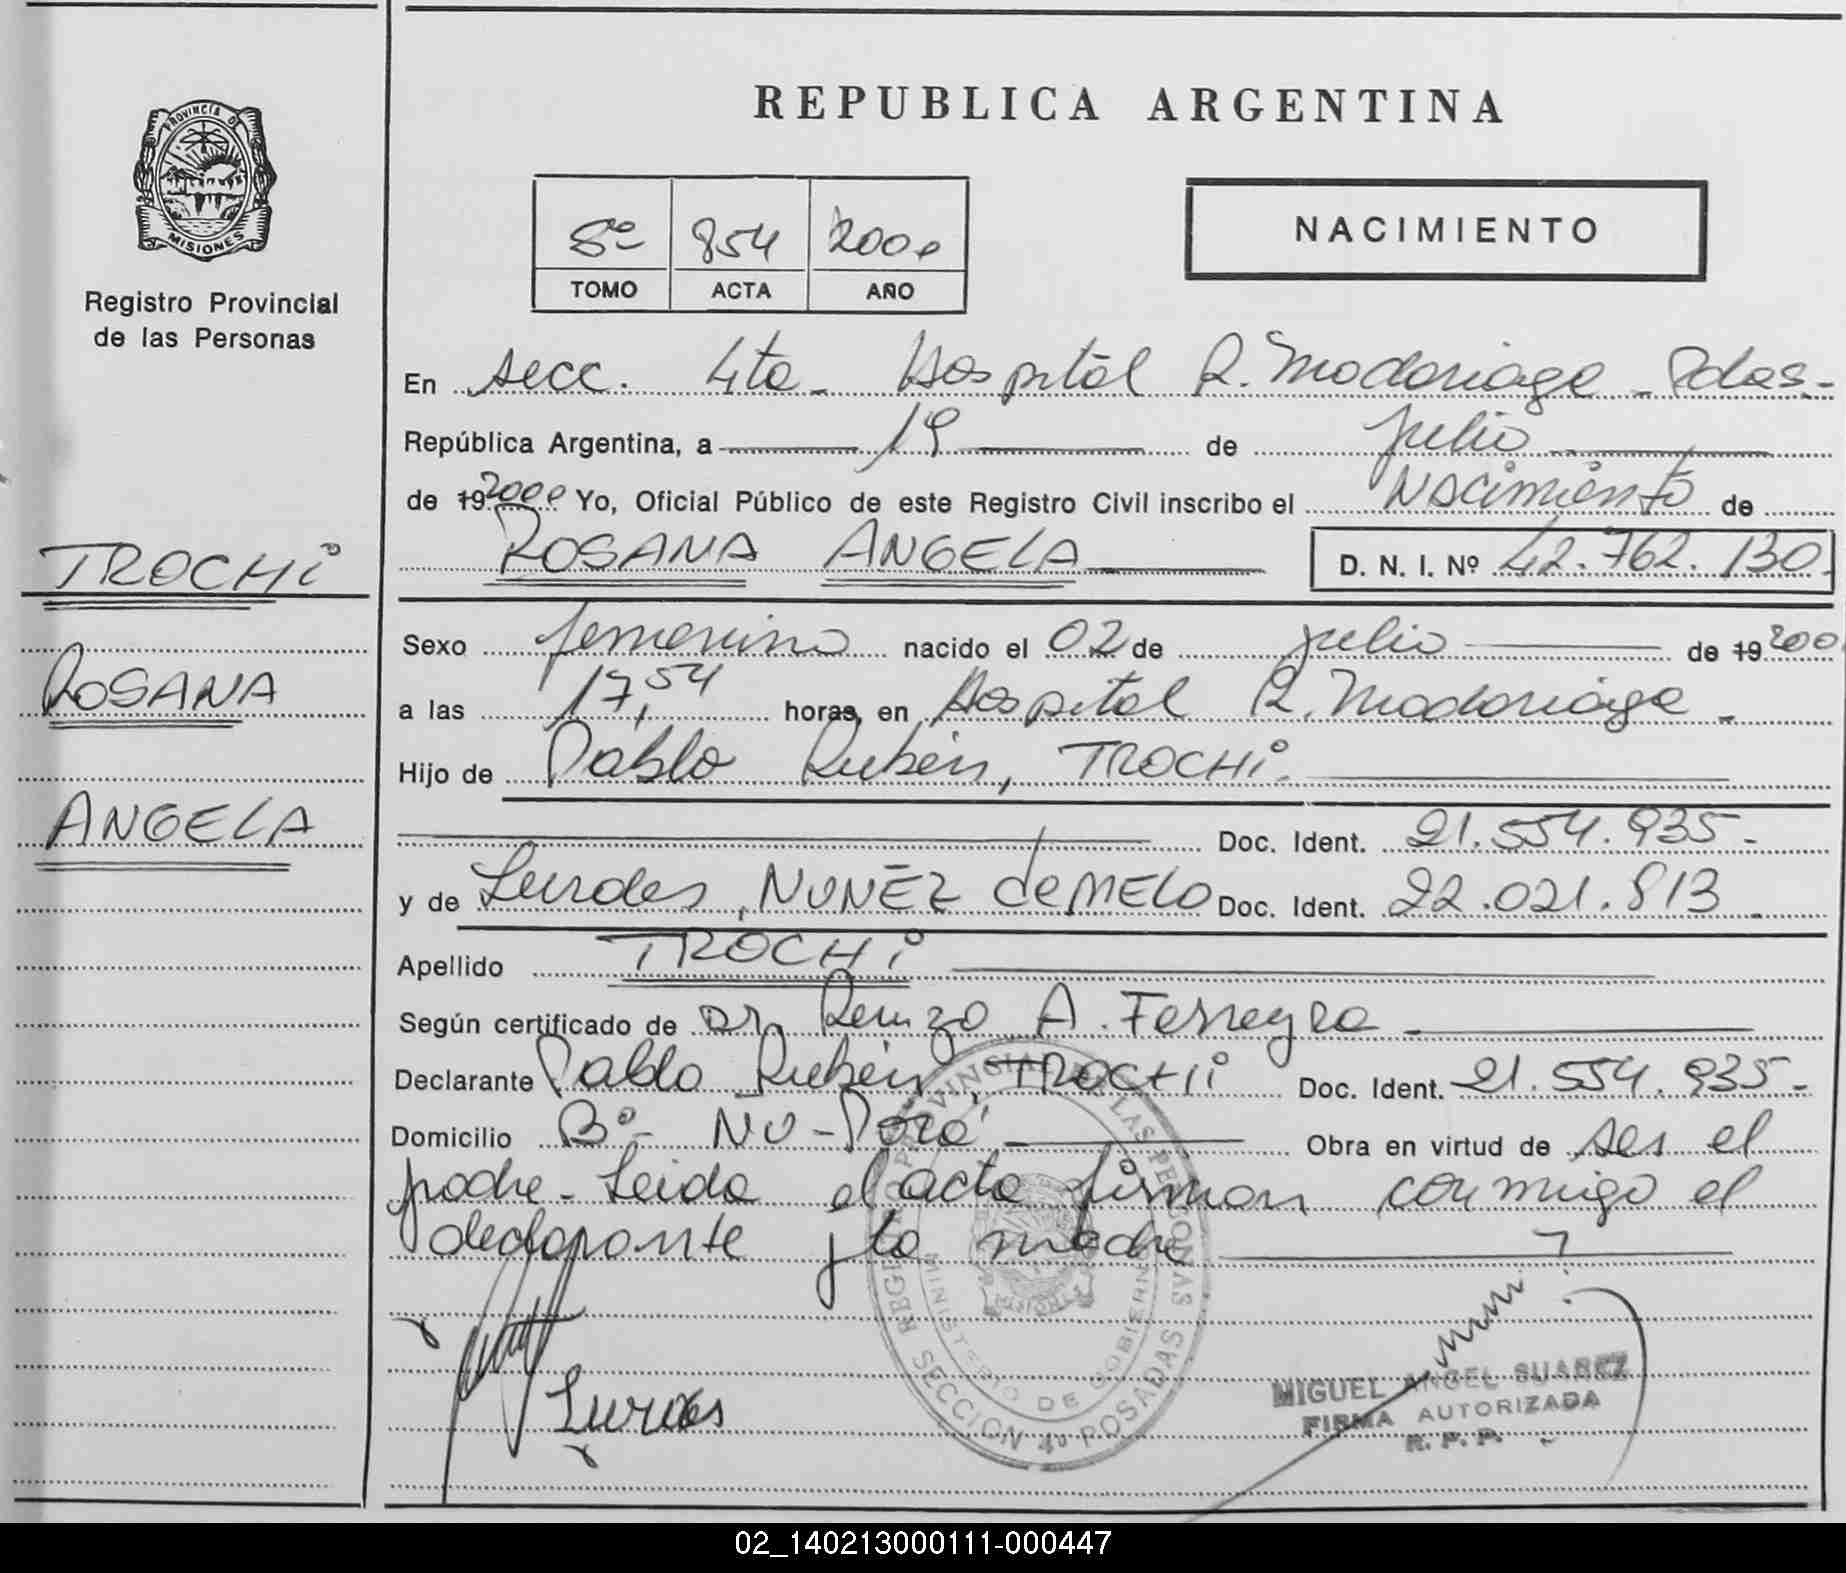 PROVINCIA DE
MISIONES
Registro Provincial
de las Personas
TROCHI
ROSANA
ANGELA
REPUBLICA ARGENTINA
5º 854 2000
TOMO ACTA AÑO
NACIMIENTO
En secc. 4ta - Hospital R. Madariaga - Pdas -
República Argentina, a 19 de julio
de 19 2000 Yo, Oficial Público de este Registro Civil inscribo el Nacimiento de
ROSANA ANGELA D. N. I. Nº 42.762.130.
Sexo femenino nacido el 02 de julio de 19 2000
a las 17,54 horas, en Hospital R. Madariaga -
Hijo de Pablo Rubén, TROCHI.
Doc. Ident. 21.554.935 -
y de Lurdes, NUNEZ de MELO Doc. Ident. 22.021.813
Apellido TROCHI
Según certificado de Dr. Renzo A. Ferreyra
Declarante Pablo Rubén, TROCHI Doc. Ident. 21.554.935 -
Domicilio Bº - ÑU - Porá Obra en virtud de ser el
padre - Leida el acta firman conmigo el
declarante y la madre
REGISTRO PROVINCIAL DE LAS PERSONAS
MINISTERIO DE GOBIERNO
MISIONES
SECCION 4º POSADAS
Lurdes
MIGUEL ANGEL SUAREZ
FIRMA AUTORIZADA
R. P. P.
02_140213000111-000447